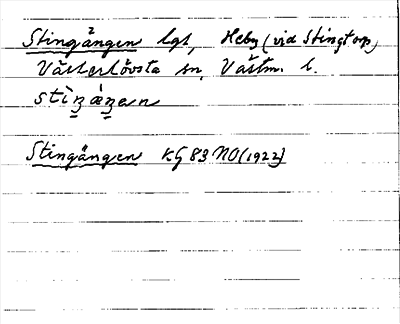 Stingängen lgt, Heby (vid Stingtorp)
Västerlövsta sn, Västm. l.
Stingängen KG 83 NO (1922)